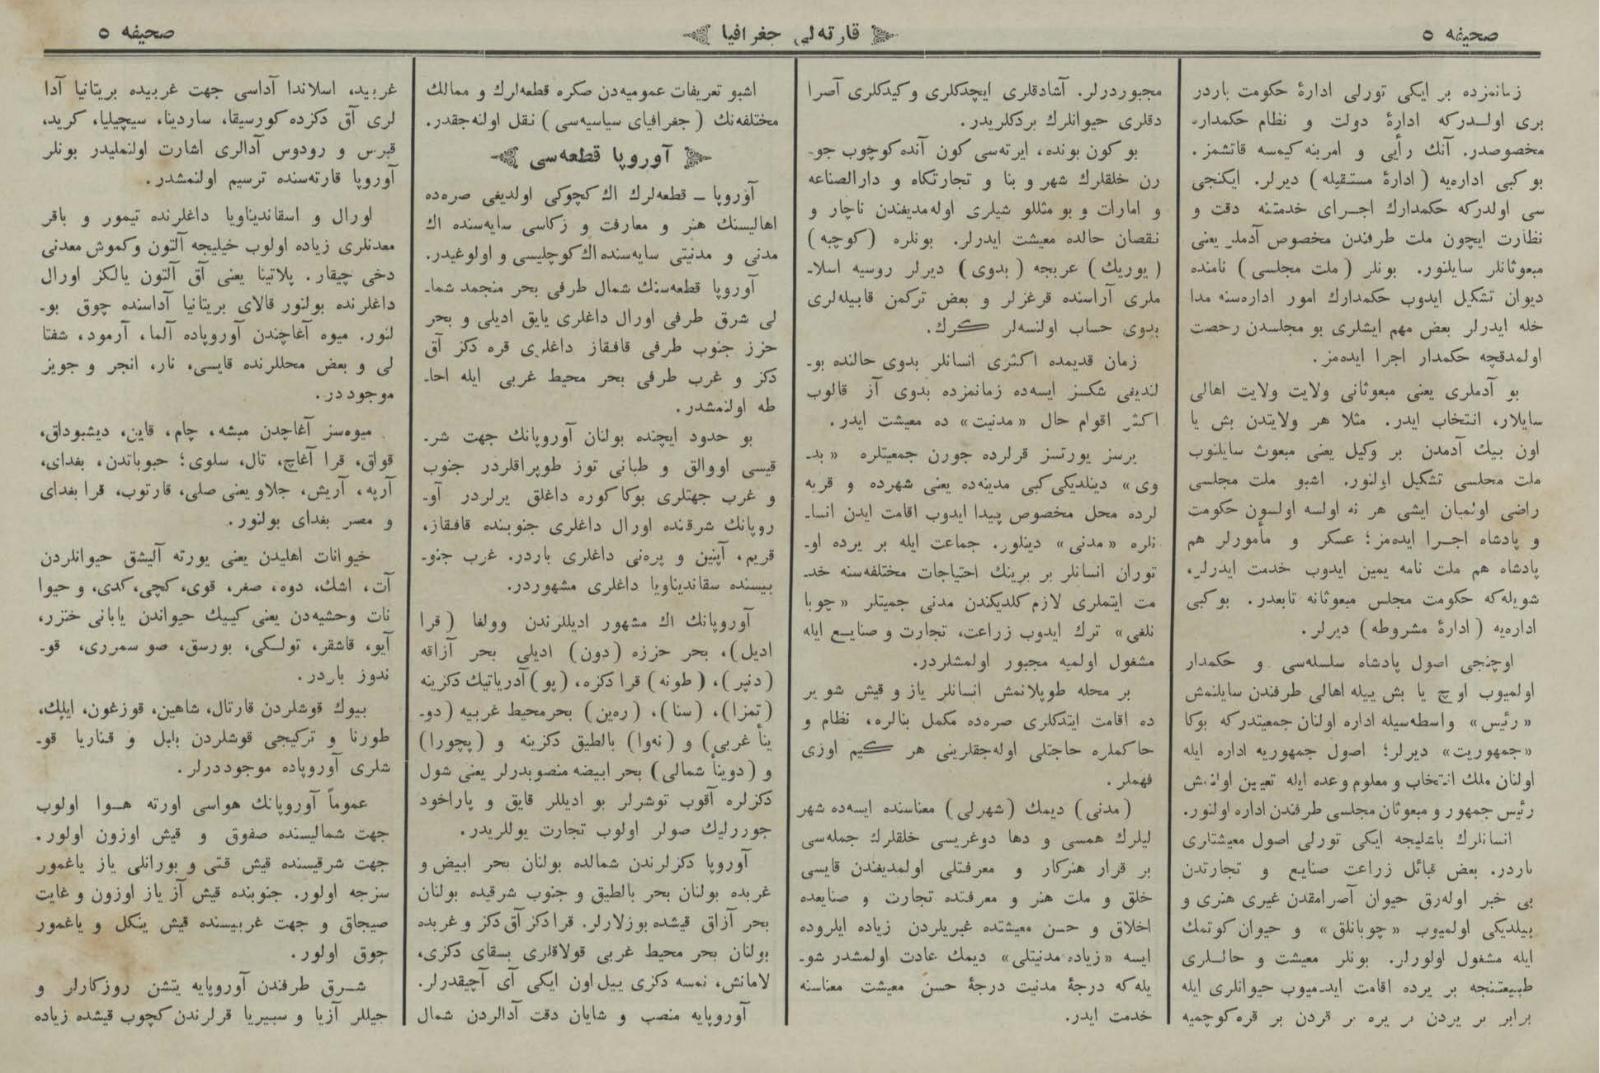 صحیفه ٥
قارته‌لی جغرافیا
صحیفه ٥
زمانمزده بر ایکی تورلی ادارۀ حکومت باردر
بری اولـدرکه ادارۀ دولت و نظام حکمدارـ
مخصوصدر. آنك رأیی و امرینه کیمسه قاتشمز.
بو کبی اداره‌یه (ادارۀ مستقیله) دیرلر. ایکنجی
سی اولدرکه حکمدارك اجـرای خدمتنه دقت و
نظارت ایچون ملت طرفندن مخصوص آدملر یعنی
مبعوثانلر سایلنور. بونلر (ملت مجلسی) نامنده
دیوان تشکیل ایدوب حکمدارك امور اداره‌سنه مدا
خله ایدرلر بعض مهم ایشلری بو مجلسدن رخصت
اولمدقچه حکمدار اجرا ایده‌مز.
بو آدملری یعنی مبعوثانی ولایت ولایت اهالی
سایلار، انتخاب ایدر. مثلا هر ولایتدن بش یا
اون بیك آدمدن بر وکیل یعنی مبعوث سایلنوب
ملت مجلسی تشکیل اولنور. اشبو ملت مجلسی
راضی اولمیان ایشی هر نه اولسه اولسون حکومت
و پادشاه اجـرا ایده‌مز؛ عسکر و مأمورلر هم
پادشاه هم ملت نامه یمین ایدوب خدمت ایدرلر،
شویله‌که حکومت مجلس مبعوثانه تابعدر. بو کبی
اداره‌یه (ادارۀ مشروطه) دیرلر.
اوچنجی اصول پادشاه سلسله‌سی و حکمدار
اولمیوب اوچ یا بش ییله اهالی طرفندن سایلنمش
«رئیس» واسطه‌سیله اداره اولنان جمعیتدرکه بوکا
«جمهوریت» دیرلر؛ اصول جمهوریه اداره ایله
اولنان ملك انتخاب و معلوم وعده ایله تعیین اولنمش
رئیس جمهور و مبعوثان مجلسی طرفندن اداره اولنور.
انسانلرك باشلیجه ایکی تورلی اصول معیشتلری
باردر. بعض قبائل زراعت صنایع و تجارتدن
بی خبر اوله‌رق حیوان آصرامقدن غیری هنری و
بیلدیکی اولمیوب «چوبانلق» و حیوان کوتمك
ایله مشغول اولورلر. بونلر معیشت و حالـلری
طبیعتنجه بر یرده اقامت ایدـمیوب حیوانلری ایله
برابر بر یردن بر یره بر قردن بر قره کوچمیه
مجبوردرلر. آشادقلری ایچدکلری و کیدکلری آصرا
دقلری حیوانلرك بردکلریدر.
بو کون بونده، ایرته‌سی کون آنده کوچوب جوـ
رن خلقلرك شهر و بنا و تجارتکاه و دارالصناعه
و امارات و بو مثللو شیلری اوله‌مدیغندن ناچار و
نقصان حالده معیشت ایدرلر. بونلره (کوچبه)
(یوریك) عربجه (بدوی) دیرلر روسیه اسلاـ
ملری آراسنده قرغزلر و بعض ترکمن قابیله‌لری
بدوی حساب اولنسه‌لر کرك.
زمان قدیمده اکثری انسانلر بدوی حالنده بوـ
لندیغی شکسز ایسه‌ده زمانمزده بدوی آز قالوب
اکثر اقوام حال «مدنیت» ده معیشت ایدر.
یرسز یورتسز قرلرده جورن جمعیتلره «بدـ
وی» دینلدیکی کبی مدینه‌ده یعنی شهرده و قریه
لرده محل مخصوص پیدا ایدوب اقامت ایدن انساـ
نلره «مدنی» دینلور. جماعت ایله بر یرده اوـ
توران انسانلر بر برینك احتیاجات مختلفه‌سنه خدـ
مت ایتملری لازم کلدیکندن مدنی جمیتلر «چوبا
نلغی» ترك ایدوب زراعت، تجارت و صنایـع ایله
مشغول اولمیه مجبور اولمشلردر.
بر محله طوپلانمش انسانلر یاز و قیش شو یر
ده اقامت ایتدکلری صره‌ده مکمل بنالره، نظام و
حاکملره حاجتلی اوله‌جقلرینی هر کیم اوزی
فهملر.
(مدنی) دیمك (شهرلی) معناسنده ایسه‌ده شهر
لیلرك همسی و دها دوغریسی خلقلرك جمله‌سی
بر قرار هنرکار و معرفتلی اولمدیغندن قایسی
خلق و ملت هنر و معرفتده تجارت و صنایعده
اخلاق و حسن معیشتده غیریلردن زیاده ایلروده
ایسه «زیاده مدنیتلی» دیمك عادت اولمشدر شوـ
یله‌که درجۀ مدنیت درجۀ حسن معیشت معناسنه
خدمت ایدر.
اشبو تعریفات عمومیه‌دن صکره قطعه‌لرك و ممالك
مختلفه‌نك (جغرافیای سیاسیه‌سی) نقل اولنه‌جقدر.
آوروپا قطعه‌سی
آوروپا ـ قطعه‌لرك اك کچوکی اولدیغی صره‌ده
اهالیسنك هنر و معارفت و زکاسی سایه‌سنده اك
مدنی و مدنیتی سایه‌سنده اك کوچلیسی و اولوغیدر.
آوروپا قطعه‌سنك شمال طرفی بحر منجمد شماـ
لی شرق طرفی اورال داغلری یایق ادیلی و بحر
حزز جنوب طرفی قافقاز داغلری قره دکز آق
دکز و غرب طرفی بحر محیط غربی ایله احاـ
طه اولنمشدر.
بو حدود ایچنده بولنان آوروپانك جهت شرـ
قیسی اووالق و طبانی توز طوپراقلردر جنوب
و غرب جهتلری بوکا کوره داغلق یرلردر آوـ
روپانك شرقنده اورال داغلری جنوبنده قافقاز،
قریم، آپنین و پره‌نی داغلری باردر. غرب جنوـ
بیسنده سقاندیناویا داغلری مشهوردر.
آوروپانك اك مشهور ادیللرندن وولغا (قرا
ادیل)، بحر حززه (دون) ادیلی بحر آزاقه
(دنپر)، (طونه) قرا دکزه، (پو) آدریاتیك دکزینه
(تمزا)، (سنا)، (رەین) بحر محیط غربیه (دوـ
ینأ غربی) و (نه‌وا) بالطیق دکزینه و (پچورا)
و (دوینأ شمالی) بحر ابیضه منصوبدرلر یعنی شول
دکزلره آقوب توشرلر بو ادیللر قایق و پاراخود
جوررلیك صولر اولوب تجارت یوللریدر.
آوروپا دکزلرندن شمالده بولنان بحر ابیض و
غربده بولنان بحر بالطیق و جنوب شرقیده بولنان
بحر آزاق قیشده بوزلارلر. قرا دکز آق دکز و غربده
بولنان بحر محیط غربی قولاقلری بسقای دکزی،
لامانش، نمسه دکزی ییل اون ایکی آی آچیقدرلر.
آوروپایه منصب و شایان دقت آدالردن شمال
غربید، اسلاندا آداسی جهت غربیده بریتانیا آدا
لری آق دکزده کورسیقا، ساردینا، سیچیلیا، کرید،
قبرس و رودوس آدالری اشارت اولنملیدر بونلر
آوروپا قارته‌سنده ترسیم اولنمشدر.
اورال و اسقاندیناویا داغلرنده تیمور و باقر
معدنلری زیاده اولوب خیلیجه آلتون و کموش معدنی
دخی چیقار. پلاتینا یعنی آق آلتون یالکز اورال
داغلرنده بولنور قالای بریتانیا آداسنده چوق بوـ
لنور. میوه آغاچندن آوروپاده آلما، آرمود، شفتا
لی و بعض محللرنده قایسی، نار، انجر و جویز
موجوددر.
میوه‌سز آغاچدن میشه، چام، قاین، دیشبوداق،
قواق، قرا آغاچ، تال، سلوی؛ حبوباتدن، بغدای،
آرپه، آریش، جلاو یعنی صلی، قارتوب، قرا بغدای
و مصر بغدای بولنور.
حیوانات اهلیدن یعنی یورته آلیشق حیوانلردن
آت، اشك، دوه، صغر، قوی، کچی، کدی، و حیوا
نات وحشیه‌دن یعنی کییك حیواندن یابانی خنزر،
آیو، قاشقر، تولـکی، بورسق، صو سمرری، قوـ
ندوز باردر.
بیوك قوشلردن قارتال، شاهین، قوزغون، ایلك،
طورنا و ترکیجی قوشلردن بلبل و قناریا قوـ
شلری آوروپاده موجوددرلر.
عموماً آوروپانك هواسی اورته هـوا اولوب
جهت شمالیسنده صفوق و قیش اوزون اولور.
جهت شرقیسنده قیش قتی و بورانلی یاز یاغمور
سزجه اولور. جنوبنده قیش آز یاز اوزون و غایت
صیجاق و جهت غربیسنده قیش ینکل و یاغمور
چوق اولور.
شـرق طرفندن آوروپایه یتشن روزکارلر و
جیللر آزیا و سیبریا قرلرندن کچوب قیشده زیاده